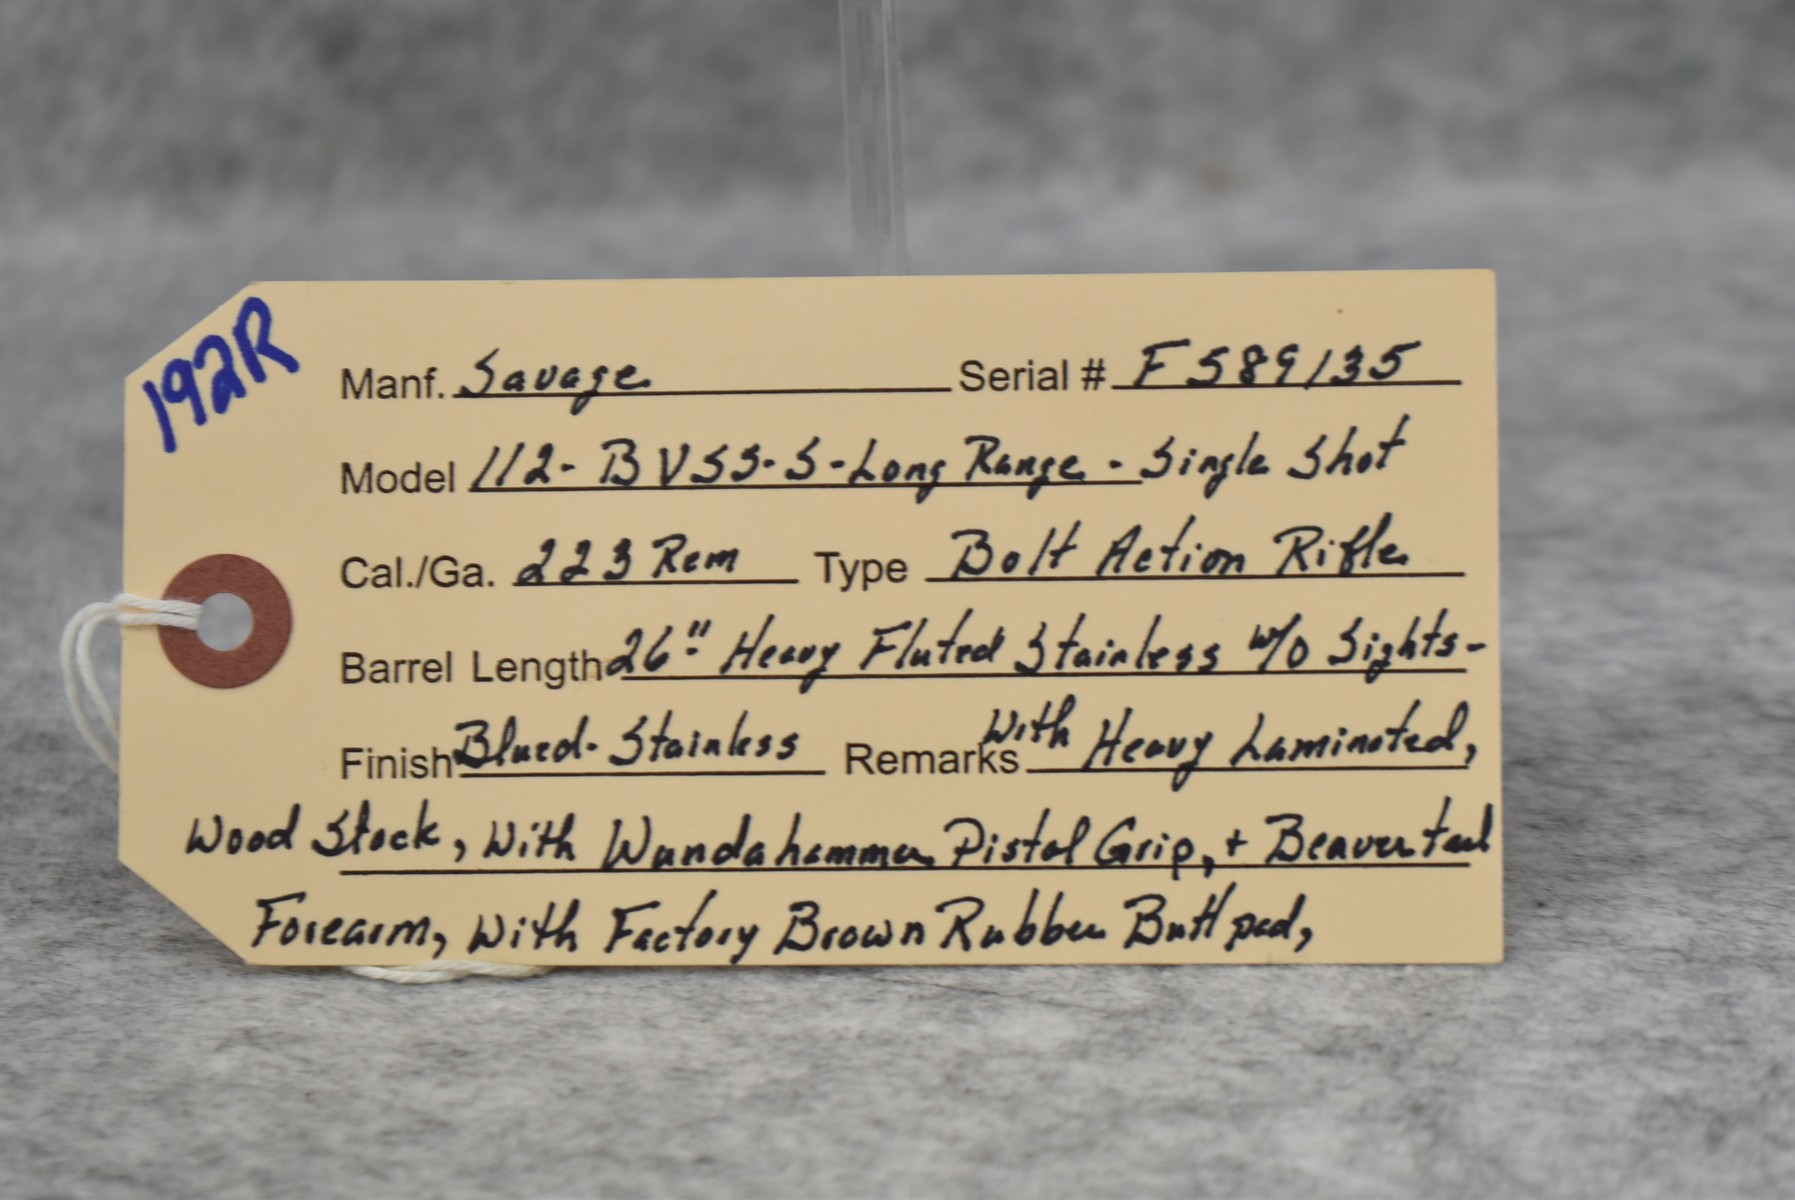 192R
Manf. Savage Serial # F589135
Model 112-BVSS-S-Long Range - Single Shot
Cal./Ga. 223 Rem Type Bolt Action Rifle
Barrel Length 26" Heavy Fluted Stainless w/o Sights-
Finish Blued-Stainless Remarks With Heavy Laminated,
Wood Stock, With Wundahammer Pistol Grip, + Beavertail
Forearm, With Factory Brown Rubber Butt pad,